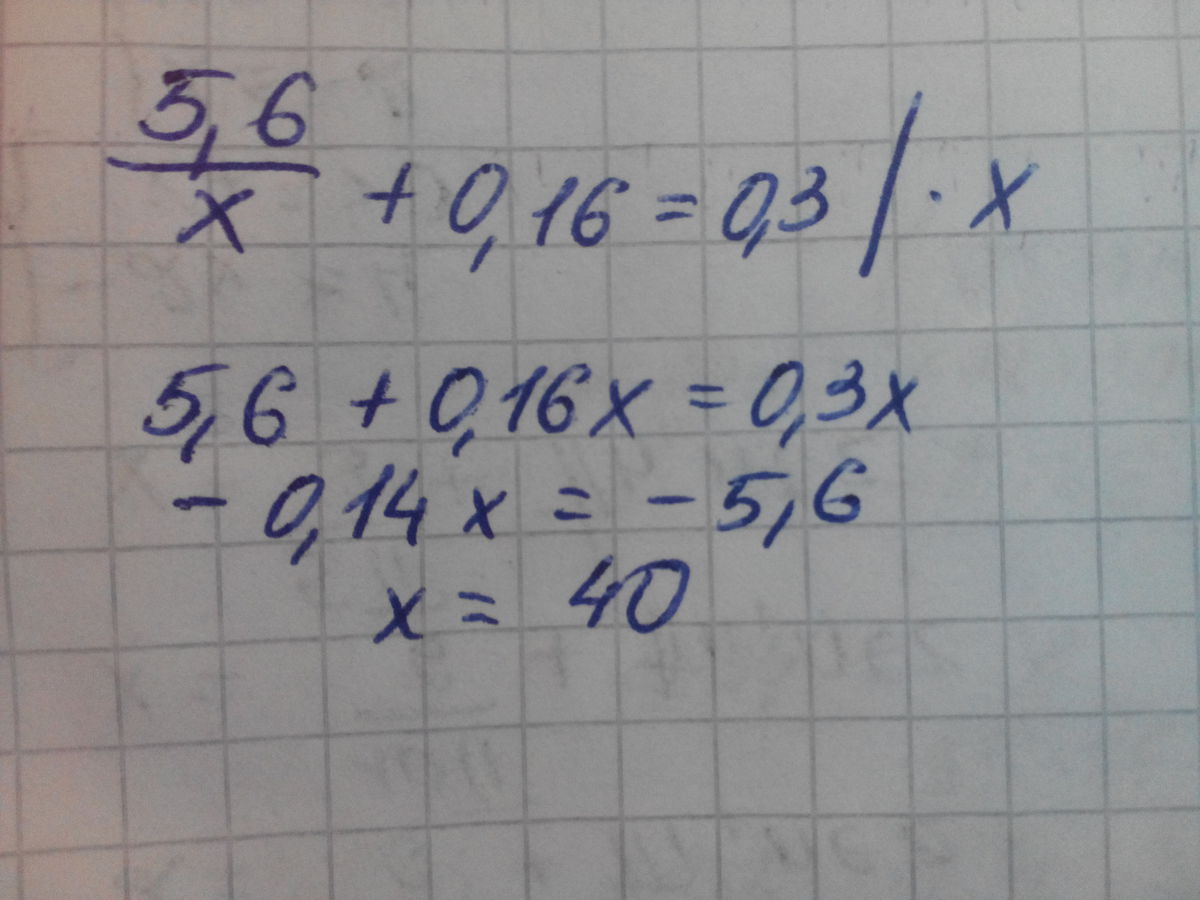 5,6/x + 0,16 = 0,3 / · x
5,6 + 0,16x = 0,3x
- 0,14x = - 5,6
x = 40